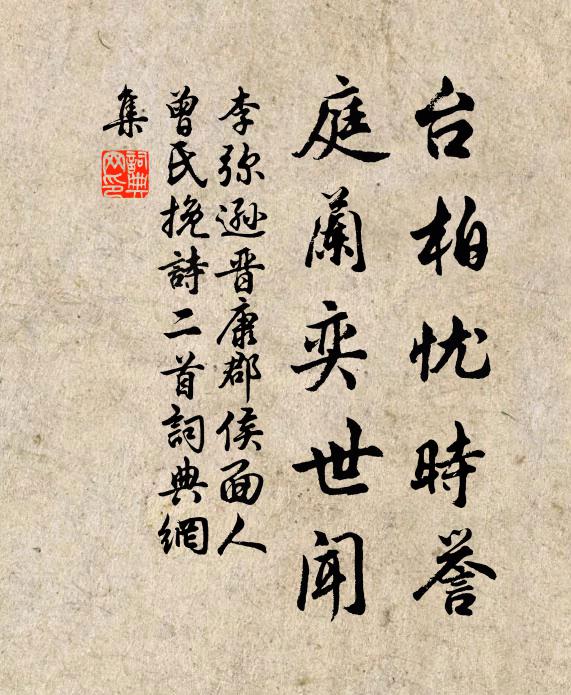 台柏忧時誉
庭蘭奕世闻
李弥遜晋康郡侯面人
曾氏挽詩二首詞典網
集
詞典
网印